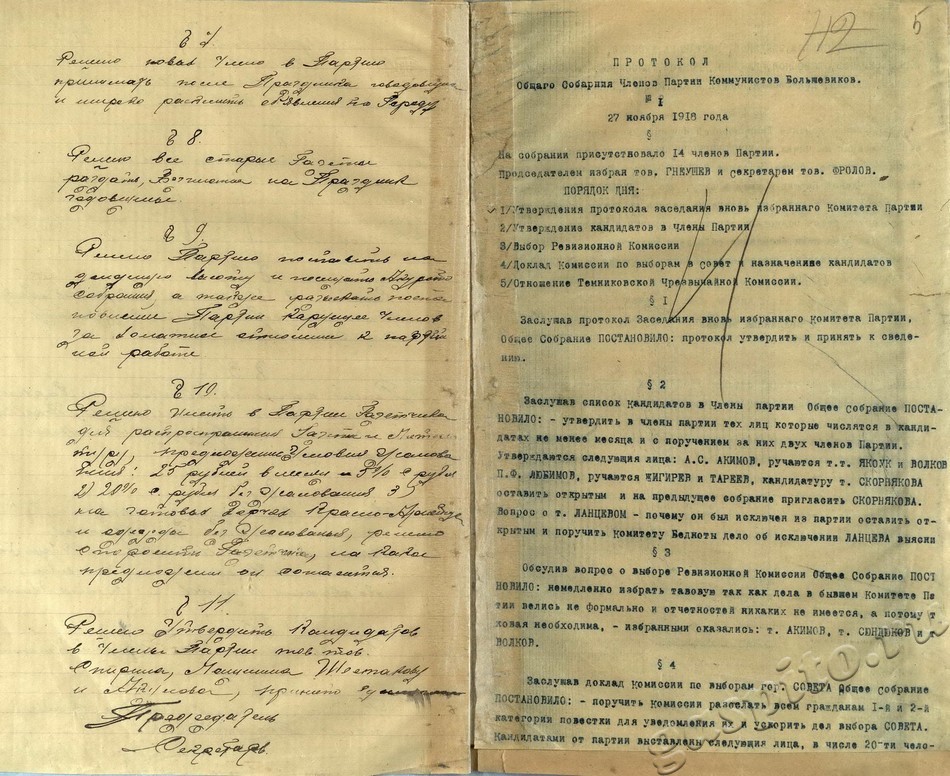 § 7.
Решено новых член в Партию
принимать после Праздника годовщины
и широко распленить объявления по Городу
§ 8.
Решено все старые Газеты
раздать, бесплатно на Праздник
годовщины.
§ 9.
Решено Партию поставить на
должную высоту и посещать
собрания, а также
Партии Членов
за отношение к партий
ной работе
§ 10.
Решено Иметь в Партии Газетчика
для распространения Газеты и
условия
25 рублей в месяц и 5% с рубля
2) 20% с рубля без жалования 3)
на готовых Красно-Армейца
и без жалования, решено
на какое
предложение он согласится.
§ 11.
Решено Утвердить Кандидатов
в Члены Партии тов. тов.
и принято
Председатель
Секретарь
42 5
ПРОТОКОЛ
Общаго Собарния Членов Партии Коммунистов Большевиков.
№ I
27 ноября 1918 года
§
На собрании присутствовало 14 членов Партии.
Председателем избран тов. ГНЕУШЕВ и секретарем тов. ФРОЛОВ.
ПОРЯДОК ДНЯ:
1/Утверждения протокола заседания вновь избраннаго Комитета Партии
2/Утверждение кандидатов в Члены Партии
3/Выбор Ревизионной Комиссии
4/Доклад Комиссии по выборам в совет и назначение кандидатов
5/Отношение Темниковской Чрезвычайной Комиссии.
§ I
Заслушав протокол Заседания вновь избраннаго Комитета Партии,
Общее Собрание ПОСТАНОВИЛО: протокол утвердить и принять к сведе-
нию.
§ 2
Заслушав список Кандидатов в Члены партии Общее Собрание ПОСТА-
НОВИЛО: - утвердить в члены партии тех лиц которые числятся в канди-
датах не менее месяца и с поручением за них двух членов Партии.
Утверждаются следующия лица: А.С. АКИМОВ, ручаются т.т. ЯКСУК и ВОЛКОВ
П.Ф. ЛЮБИМОВ, ручаются ЖИГИРЕВ и ТАРЕЕВ, кандидатуру т. СКОРНЯКОВА
оставить открытым и на предыдущее собрание пригласить СКОРНЯКОВА.
Вопрос о т. ЛАНЦЕВОМ - почему он был исключен из партии оставить от-
крытым и поручить Комитету Бедноты дело об исключении ЛАНЦЕВА выясни
§ 3
Обсудив вопрос о выборе Ревизионной Комиссии Общее Собрание ПОСТ
НОВИЛО: немедленно избрать тавовую так как дела в бывшем Комитете Па
тии велись не формально и отчетностей никаких не имеется, а потому т
ковая необходима, - избранными оказались: т. АКИМОВ, т. СЮНДЮКОВ и
ВОЛКОВ.
§ 4
Заслушав доклад Комиссии по выборам гор. СОВЕТА Общее Собрание
ПОСТАНОВИЛО: - поручить Комиссии разослать всем гражданам I-й и 2-й
категории повестки для уведомления их и ускорить дел выбора СОВЕТА.
Кандидатами от партии выставлены следующия лица, в числе 20-ти чело-